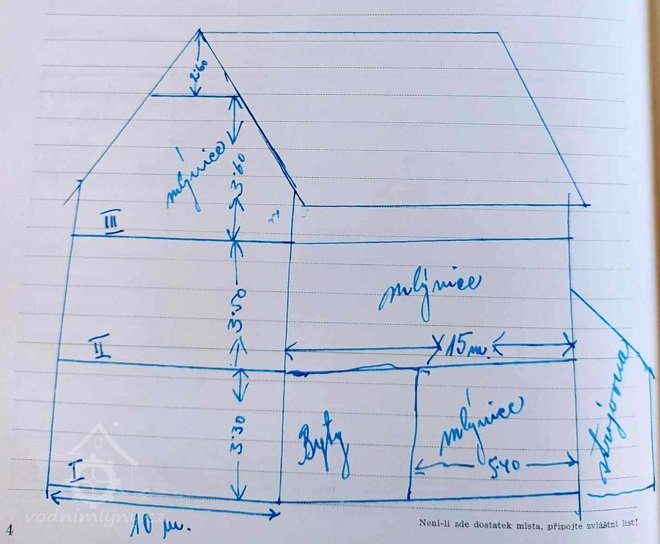 2·60
mlýnice
3·60
III
mlýnice
II
15 m.
I
3·30
Byty
mlýnice
5·40
strojovna
10 m.
vodnimlyny.cz
4
Není-li zde dostatek místa, připojte zvláštní list!